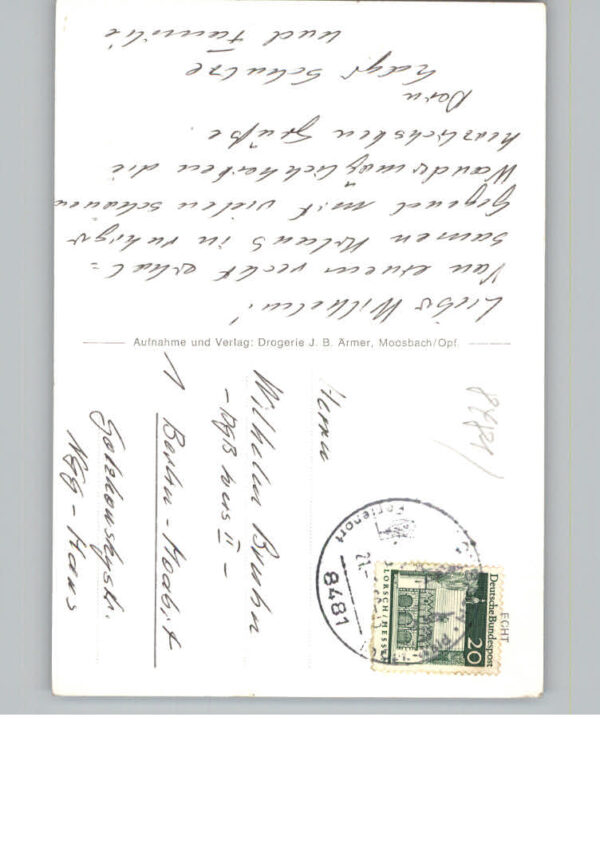 Lieber Wilhelm!
Von einem recht erhol=
samen Urlaub in ruhiger
Gegend mit vielen schönen
Wandermöglichkeiten die
herzlichsten Grüße.
Schulze
und Familie
Aufnahme und Verlag: Drogerie J. B. Ärmer, Moosbach/Opf.
Herrn
Wilhelm Bruhn
1 Berlin-Moabit
Gotzkowskystr.
NGG-Haus
8481
Ferienort
8481
ECHT
Deutsche Bundespost
20
LORSCH/HESSEN